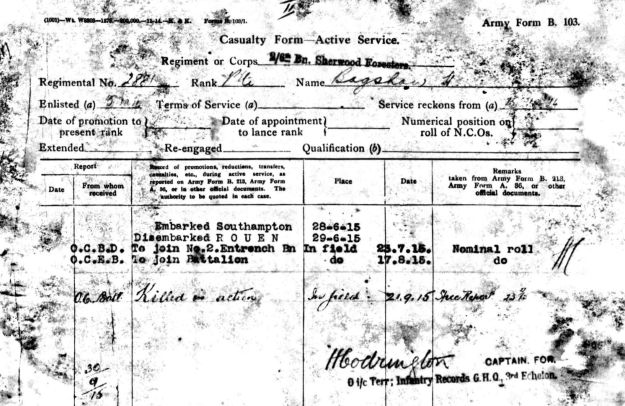 Army Form B. 103.
Casualty Form—Active Service.
Regiment or Corps Bn. Sherwood Foresters
Regimental No. Rank Pte Name Bagshaw
Enlisted (a) Terms of Service (a) Service reckons from (a)
Date of promotion to present rank
Date of appointment to lance rank
Numerical position on roll of N.C.Os.
Extended Re-engaged Qualification (b)
Report
Date
From whom received
Record of promotions, reductions, transfers, casualties, etc., during active service, as reported on Army Form B. 213, Army Form A. 36, or in other official documents. The authority to be quoted in each case.
Place
Date
Remarks
taken from Army Form B. 213, Army Form A. 36, or other official documents.
Embarked Southampton 28-6-15
Disembarked ROUEN 29-6-15
O.C.B.D. To join No.2.Entrench Bn In field 23.7.15. Nominal roll
O.C.E.B. To join Battalion do 17.8.15. do
O.C. Batt Killed in action In field 21.9.15
30
9
15
CAPTAIN. FOR.
O i/c Terr; Infantry Records G.H.Q. 3rd Echelon.